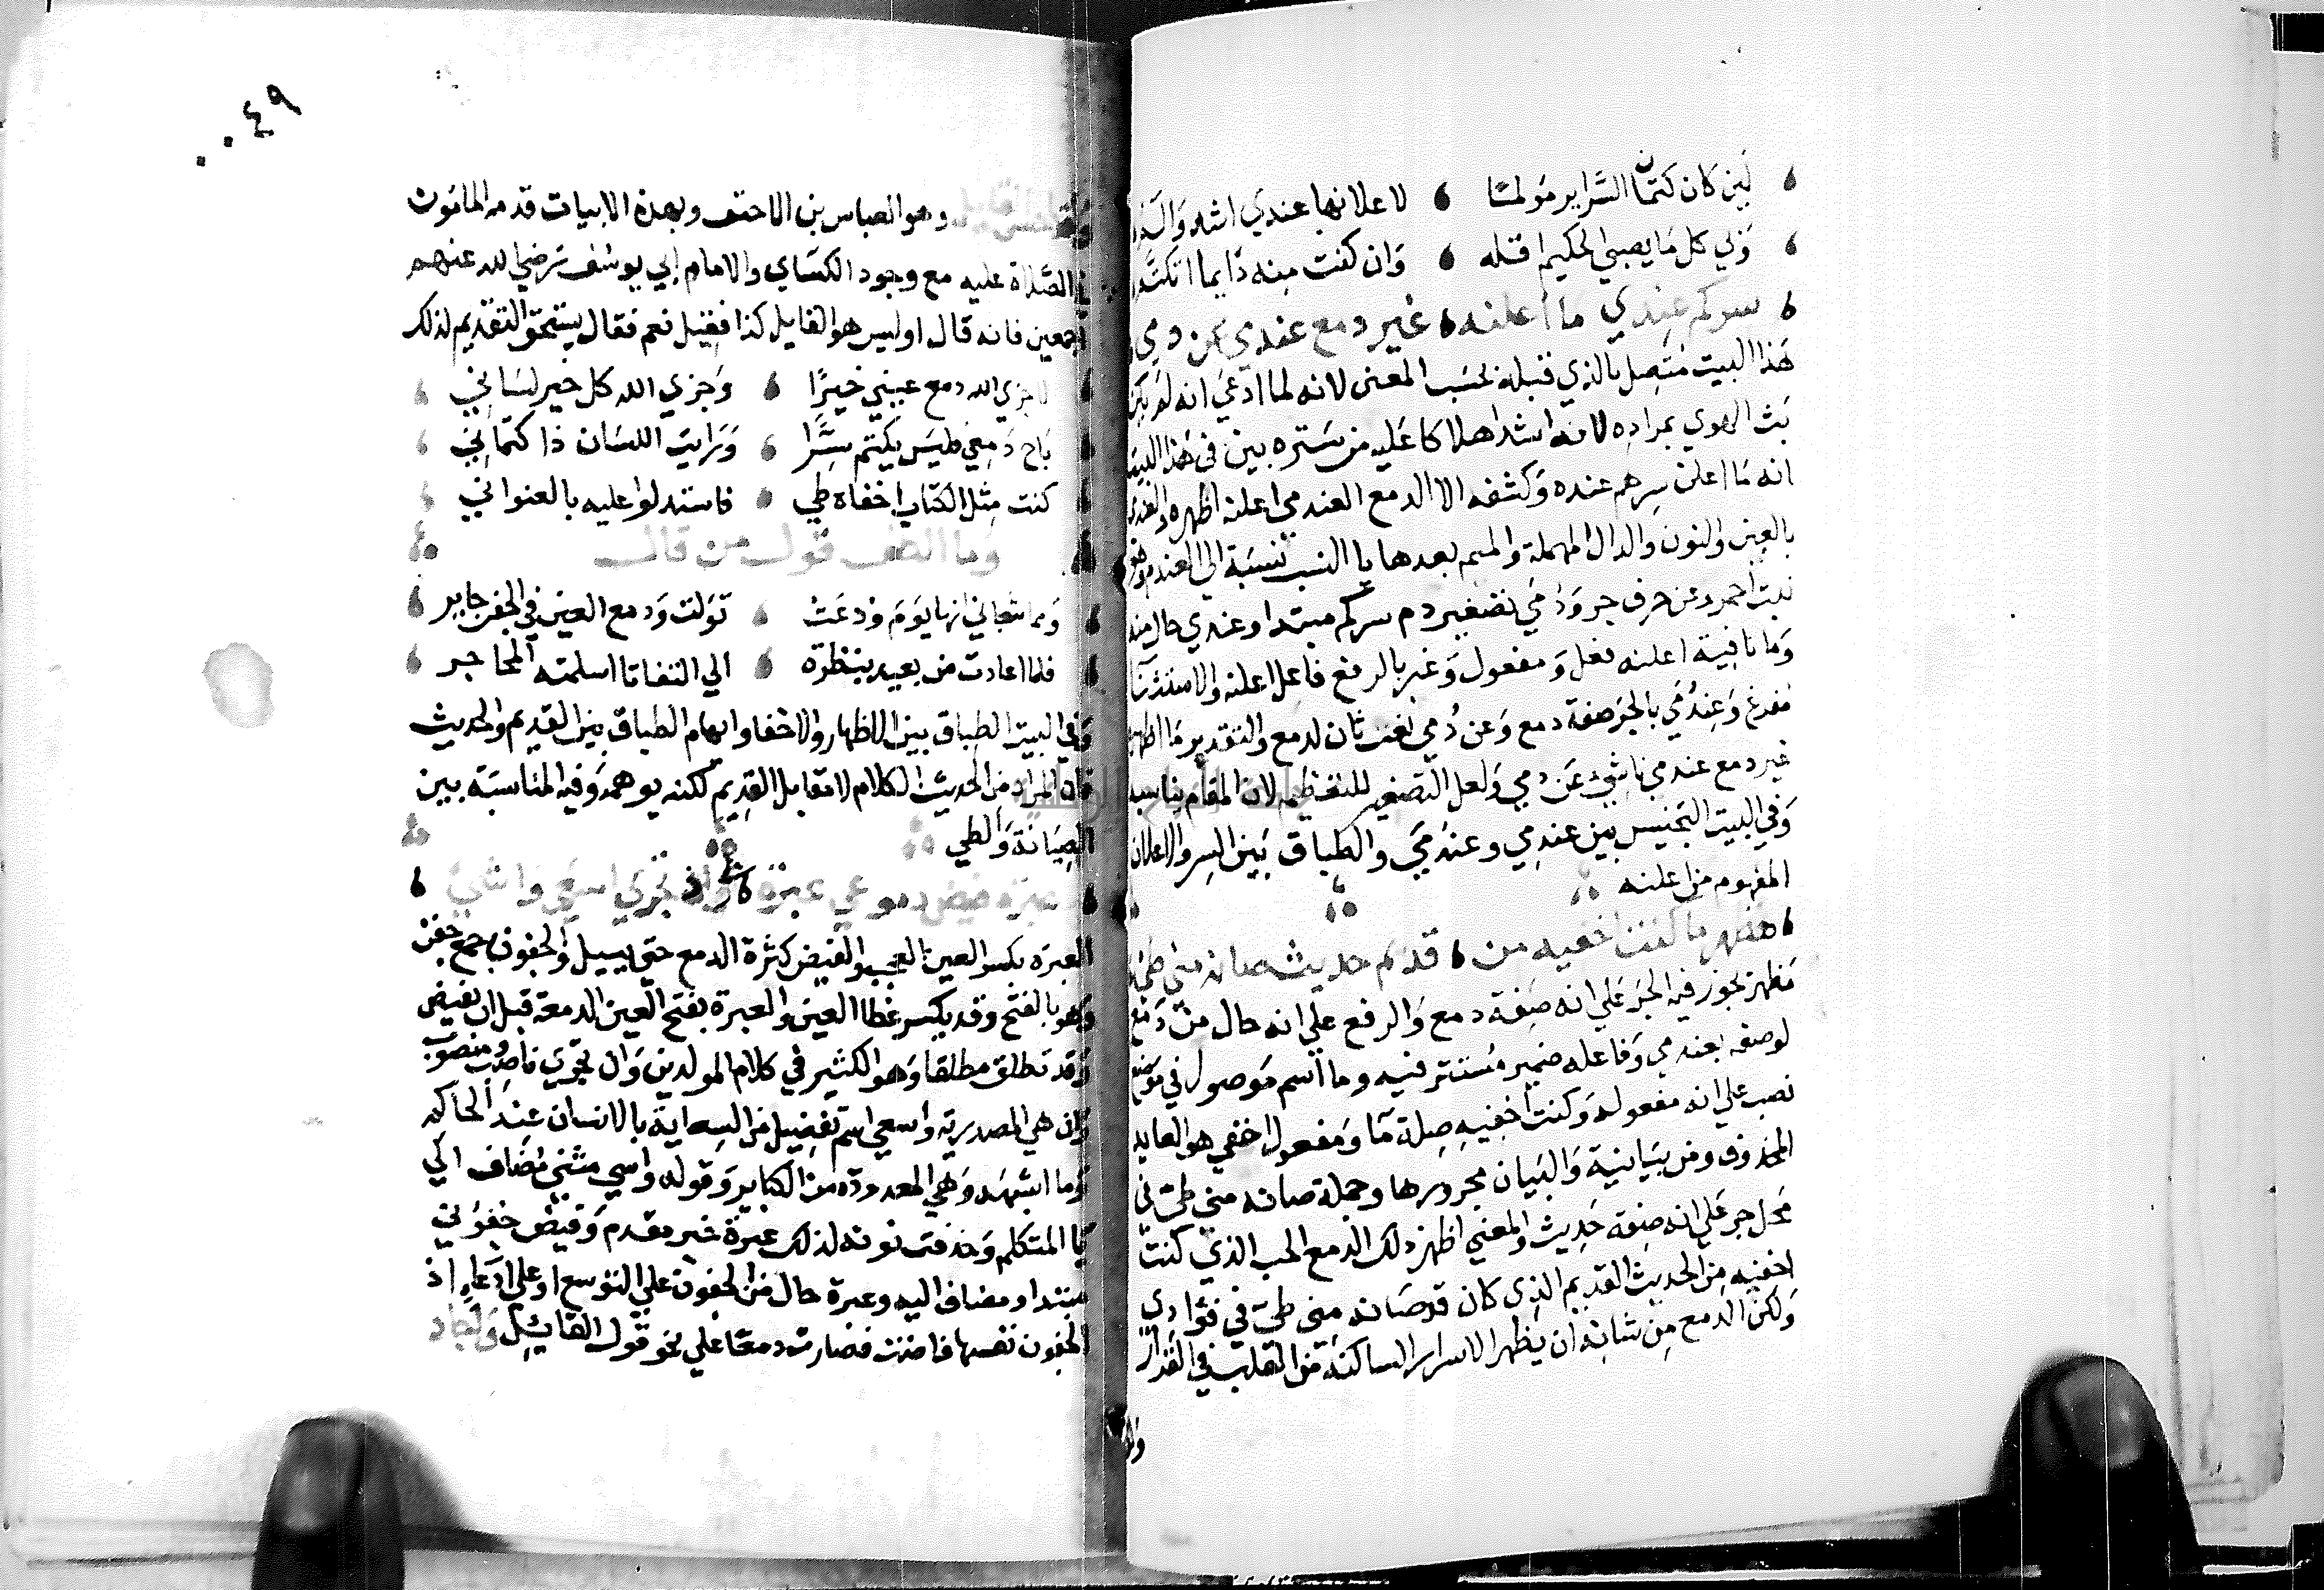 لين كان كتمان السراير مولما لاعلانها عندي اشد والذ
وبي كل ما يصبى الحكيم اقله وان كنت منه دايما اتكتم
سركم عندي ما اعلنه غير دمع عندمي عن دمي
هذا البيت متصل بالذي قبله بحسب المعنى لانه لما ادعى انه لم يكن
بث الهوي بمراده لانه اشد اهلاكا عليه من ستره بين في هذا البيت
انه ما اعلن سرهم عنده وكشفه الا الدمع العندمي اعلنه اظهره والعندمي
بالعين والنون والدال المهملة والميم بعدها يا النسب نسبة الي العندم وهو
نبت احمر وعن حرف جر ودمي تصغير دم سركم مبتدا وعندي حال منه
وما نافية اعلنه فعل ومفعول وغير بالرفع فاعل اعلنه والاستثنا
مفرغ وعندمي بالجر صفة دمع وعن دمي نعت ثان لدمع والتقدير ما اظهره
غير دمع عندمي ناشئ عن دمي ولعل التصغير للتعظيم لان المقام يناسبه
وفي البيت التجنيس بين عندمي وعندمي والطباق بين السر والاعلان
المفهوم من اعلنه
مظهر ما كنت اخفيه من قديم حديث صانه مني طي
مظهر يجوز فيه الجر علي انه صفة دمع والرفع علي انه حال من دمع
لوصفه بعندمي وفاعله ضمير مستتر فيه وما اسم موصول في موضع
نصب علي انه مفعوله وكنت اخفيه صلة ما ومفعول اخفي هو العايد
المحذوف ومن بيانية والبيان مجرورها وجملة صانه مني طي في
محل جر علي انه صفة حديث والمعني اظهر ذلك الدمع الحب الذي كنت
اخفيه من الحديث القديم الذي كان قد صانه مني طي في فؤادي
ولكن الدمع من شانه ان يظهر الاسرار الساكنة من القلب في القرار
وهو العباس بن الاحنف وبهذه الابيات قدمه المامون
في الصلاة عليه مع وجود الكساي والامام ابي يوسف رضي الله عنهم
اجمعين فانه قال اوليس هو القايل كذا فقيل نعم فقال يستحق التقديم لذلك
لا جزي الله دمع عيني خيرا وجزي الله كل خير لساني
باح دمعي فليس يكتم سرا ورايت اللسان ذا كتماني
كنت مثل الكتاب اخفاه طي فاستدلوا عليه بالعنواني
وما الطف قول من قال
ومما شجاني انها يوم ودعت تولت ودمع العين في الجفن حاير
فلما اعادت من بعيد بنظرة الي التفاتا اسلمته المحاجر
وفي البيت الطباق بين الاظهار والاخفا وابهام الطباق بين القديم والحديث
فان المراد من الحديث الكلام لا مقابل القديم لكنه يوهمه وفيه المناسبة بين
الصيانة والطي
عبرة فيض دموعي عبرة ان تجري اسعى واشي
العبرة بكسر العين العجب والفيض كثرة الدمع حتي يسيل والجفون جمع جفن
وهو بالفتح وقد يكسر غطا العين والعبرة بفتح العين الدمعة قبل ان تفيض
وقد تطلق مطلقا وهو الكثير في كلام المولدين وان تجري ناصب ومنصوب
وان هي المصدرية واسعي اسم تفضيل من السعاية بالانسان عند الحاكم
وما اشبهه وهي المعدودة من الكباير وقوله واشي مثني مضاف الي
يا المتكلم وحذفت نونه لذلك عبرة خبر مقدم وفيض جفوني
مبتدا ومضاف اليه وعبرة حال من الجفون علي التوسع او علي ادعاء ان
الجفون نفسها فاضت فصارت دمعا علي نحو قول القايل
٠٠٤٩